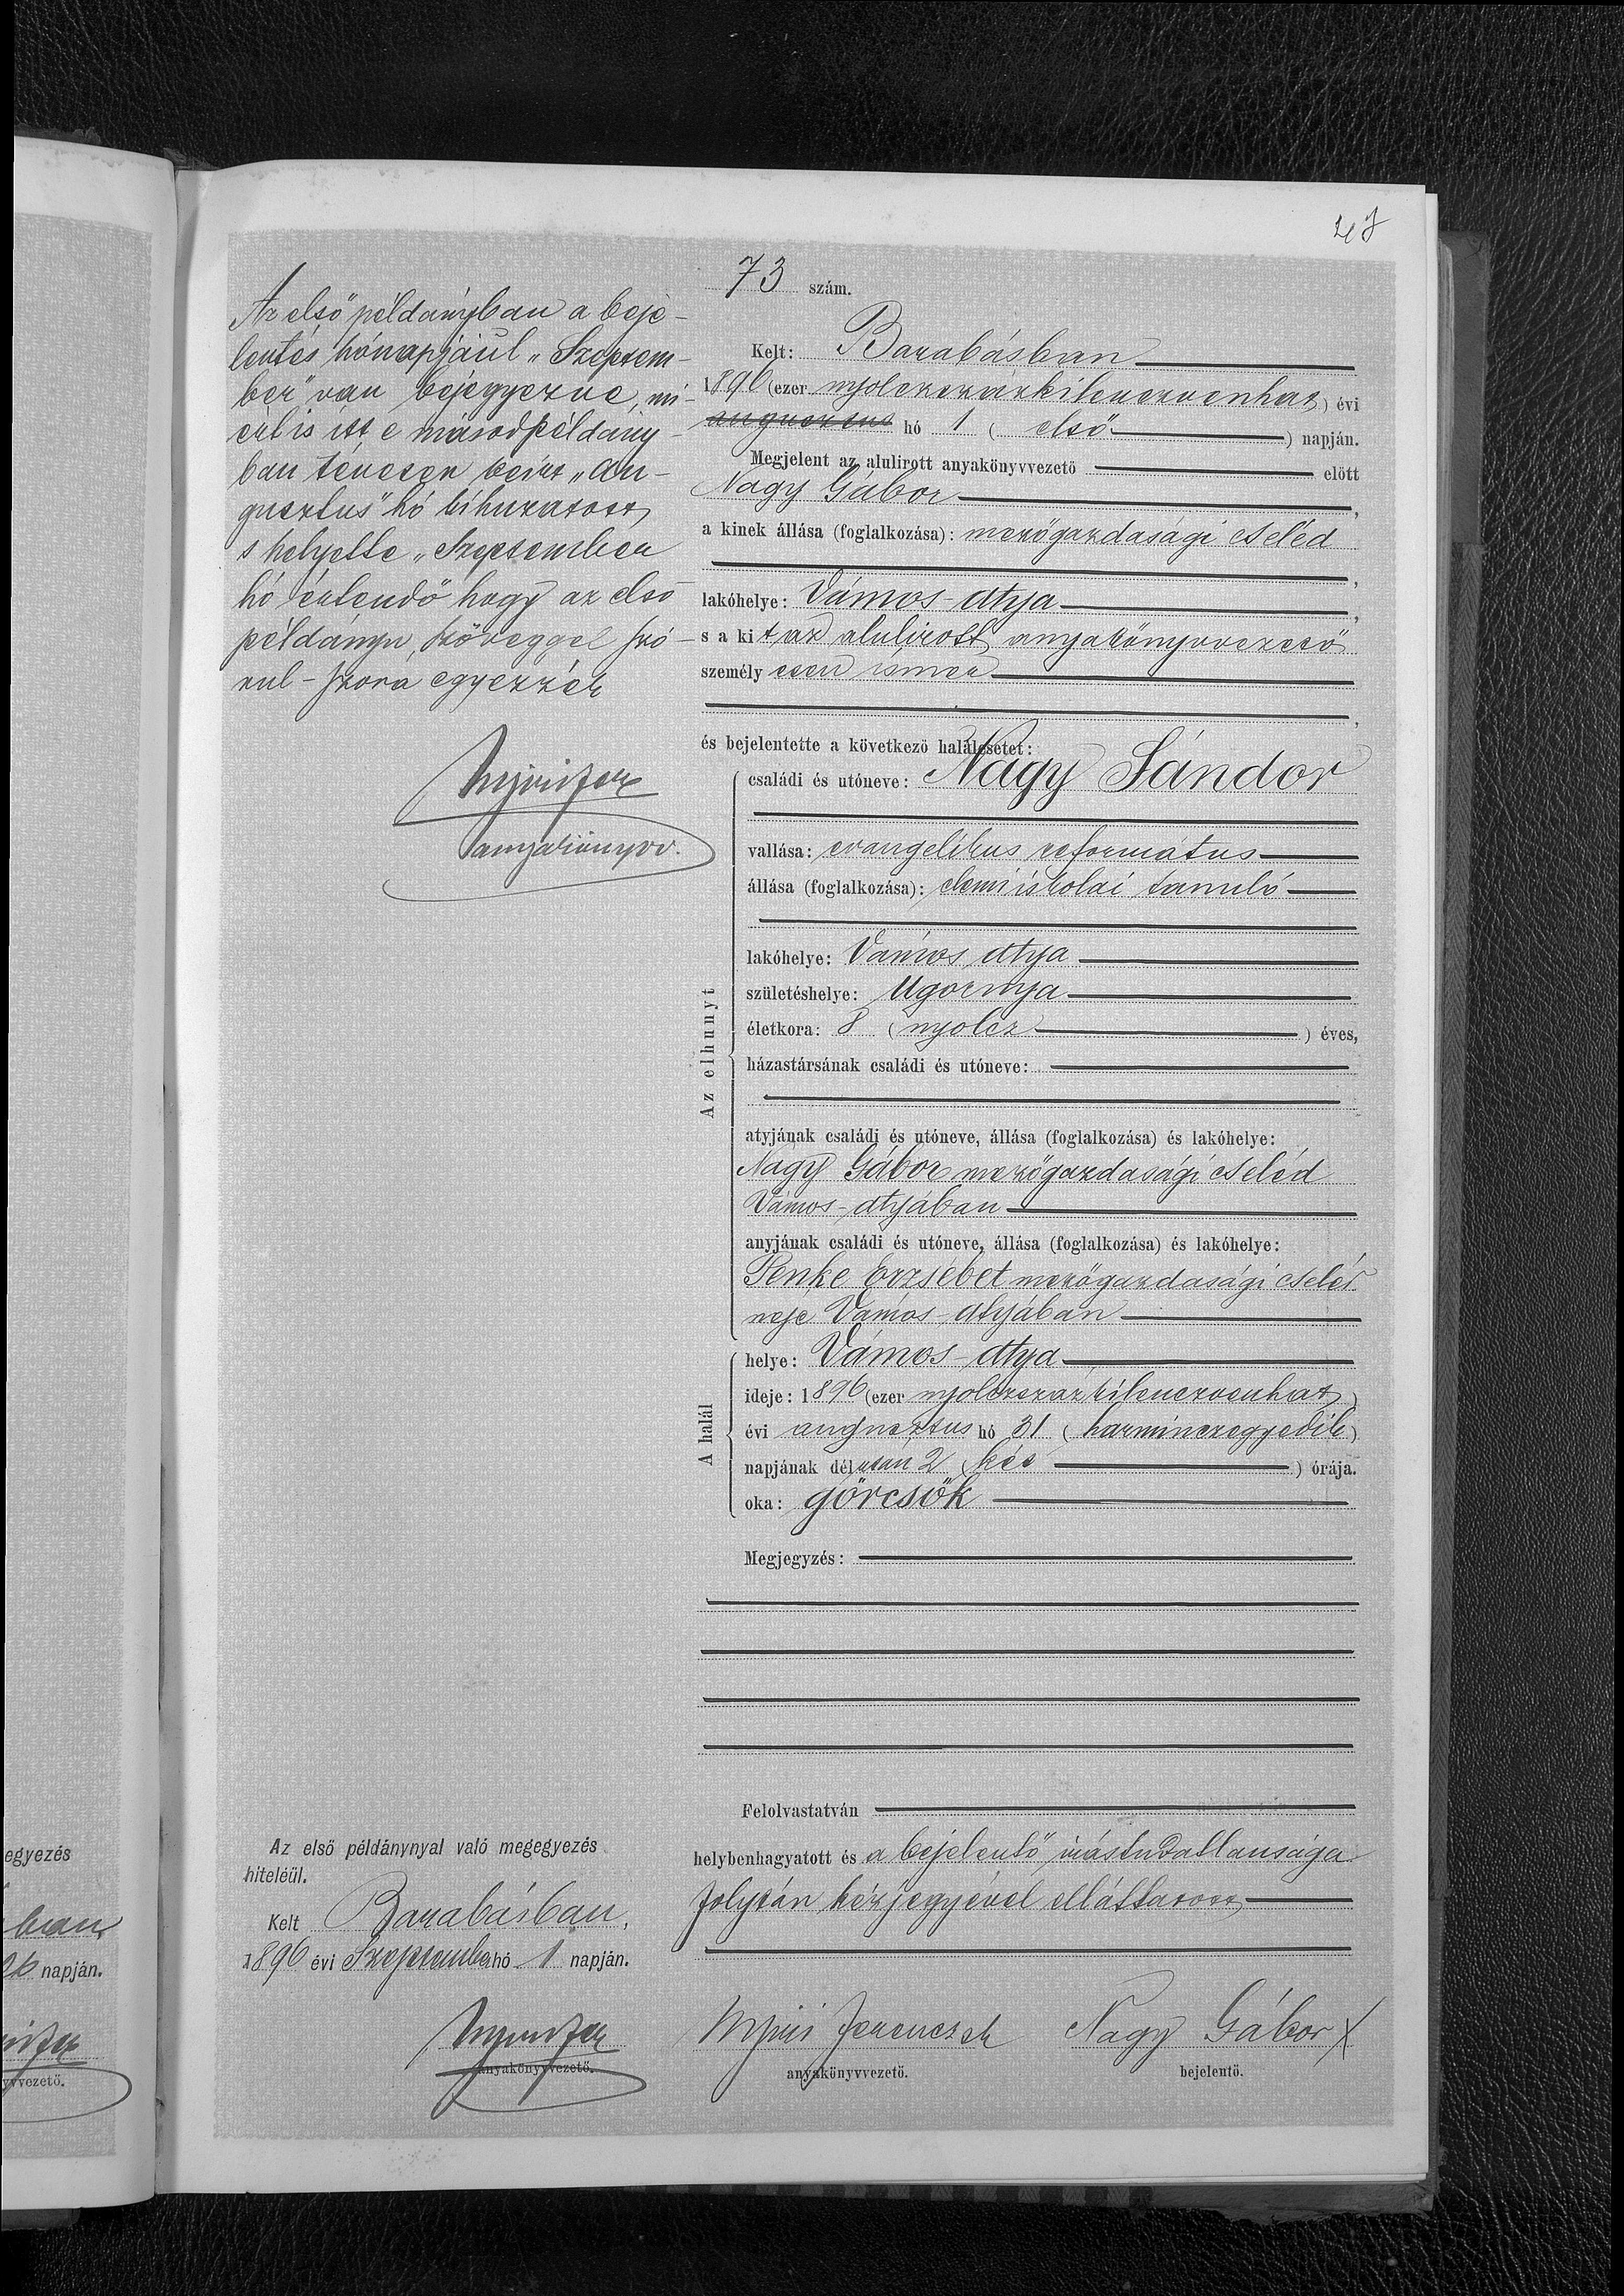 47
73 szám.
Az első példányban a beje-
lentés hónapjául „Szeptem-
ber" van bejegyezve, mi-
ért is itt e másodpéldány-
ban tévesen beírt „au-
gusztus" hó kihuzatott
s helyette „Szeptember
hó értendő hogy az első
példányu szöveggel szó-
rul-szóra egyezzék
Nyiri Fer
anyakönyvv.
Kelt: Barabásban
1896 (ezer nyolczszázkilenczvenhat) évi
augusztus hó 1 (első) napján.
Megjelent az alulirott anyakönyvvezető előtt
Nagy Gábor,
a kinek állása (foglalkozása): mezőgazdasági cseléd
,
lakóhelye: Vámos-Atya,
s a kit az alulirott anyakönyvvezető
személyesen ismer
,
és bejelentette a következő halálesetet:
Az elhunyt
családi és utóneve: Nagy Sándor
vallása: evangelikus református
állása (foglalkozása): elemi iskolai tanuló
lakóhelye: Vámos Atya
születéshelye: Ugornya
életkora: 8 (nyolcz) éves,
házastársának családi és utóneve:
atyjának családi és utóneve, állása (foglalkozása) és lakóhelye:
Nagy Gábor mezőgazdasági cseléd
Vámos-Atyában
anyjának családi és utóneve, állása (foglalkozása) és lakóhelye:
Penke Erzsébet mezőgazdasági cseléd
neje Vámos-Atyában
A halál
helye: Vámos-Atya
ideje: 1896 (ezer nyolczszázkilenczvenhat)
évi augusztus hó 31 (harminczegyedik)
napjának délután 2 (két) órája.
oka: görcsök
Megjegyzés:
Felolvastatván
helybenhagyatott és a bejelentő irástudatlansága
folytán kézjegyével elláttatott
Nyiri Ferencz sk
anyakönyvvezető.
Nagy Gábor X
bejelentő.
Az első példánynyal való megegyezés
hiteléül.
Kelt Barabásban,
1896 évi Szeptember hó 1 napján.
Nyiri Fer
anyakönyvvezető.
egyezés
ban
26 napján.
yvvezető.